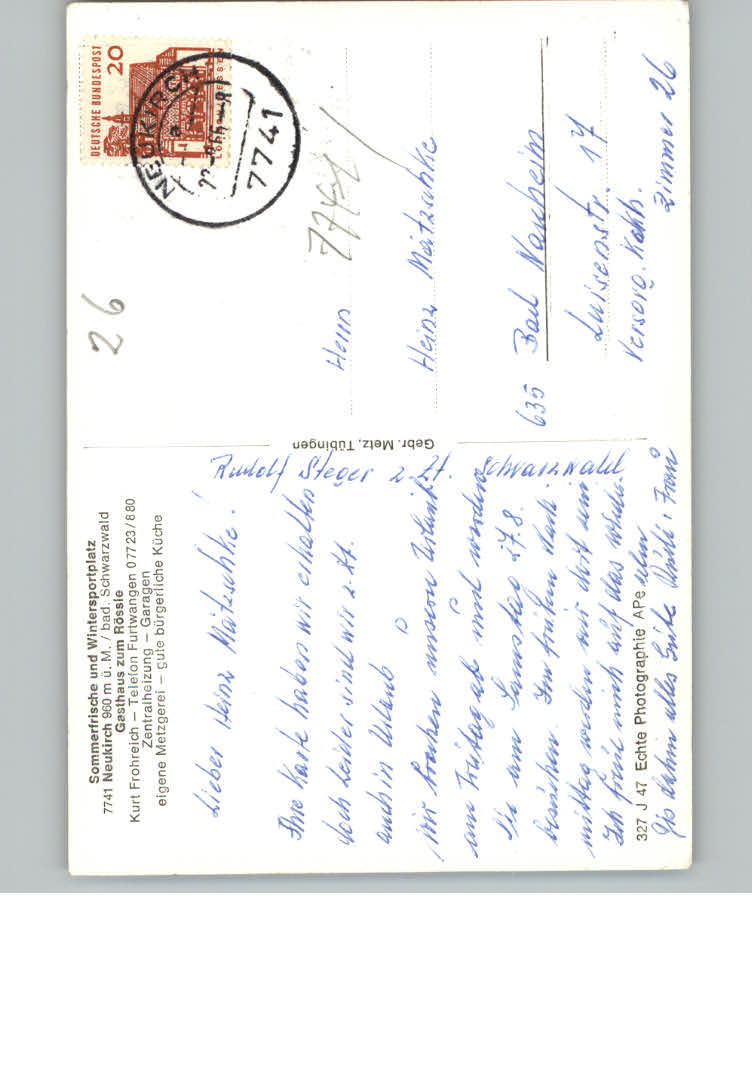 Sommerfrische und Wintersportplatz
7741 Neukirch 960 m ü. M. / bad. Schwarzwald
Gasthaus zum Rössle
Kurt Frohreich – Telefon Furtwangen 07723/880
Zentralheizung – Garagen
eigene Metzgerei – gute bürgerliche Küche
Rudolf Steger z. Zt. Schwarzwald
Lieber Heinz Mätzschke!
Ihre Karte haben wir erhalten
doch leider sind wir z. Zt.
auch in Urlaub
wir brechen unseren Urlaub
am Freitag ab und werden
Sie am Samstag 27.8.
besuchen. Im frühen Nach-
mittag werden wir dort sein
Ich freue mich auf das Wieder-
sehn
Bis dahin alles Gute Ihr u. Frau
327 J 47 Echte Photographie APe
Gebr. Metz, Tübingen
26
DEUTSCHE BUNDESPOST
20
NEUKIRCH
7741
7741
Herrn
Heinz Mätzschke
635 Bad Nauheim
Luisenstr. 17
Versorg. Kskh.
Zimmer 26